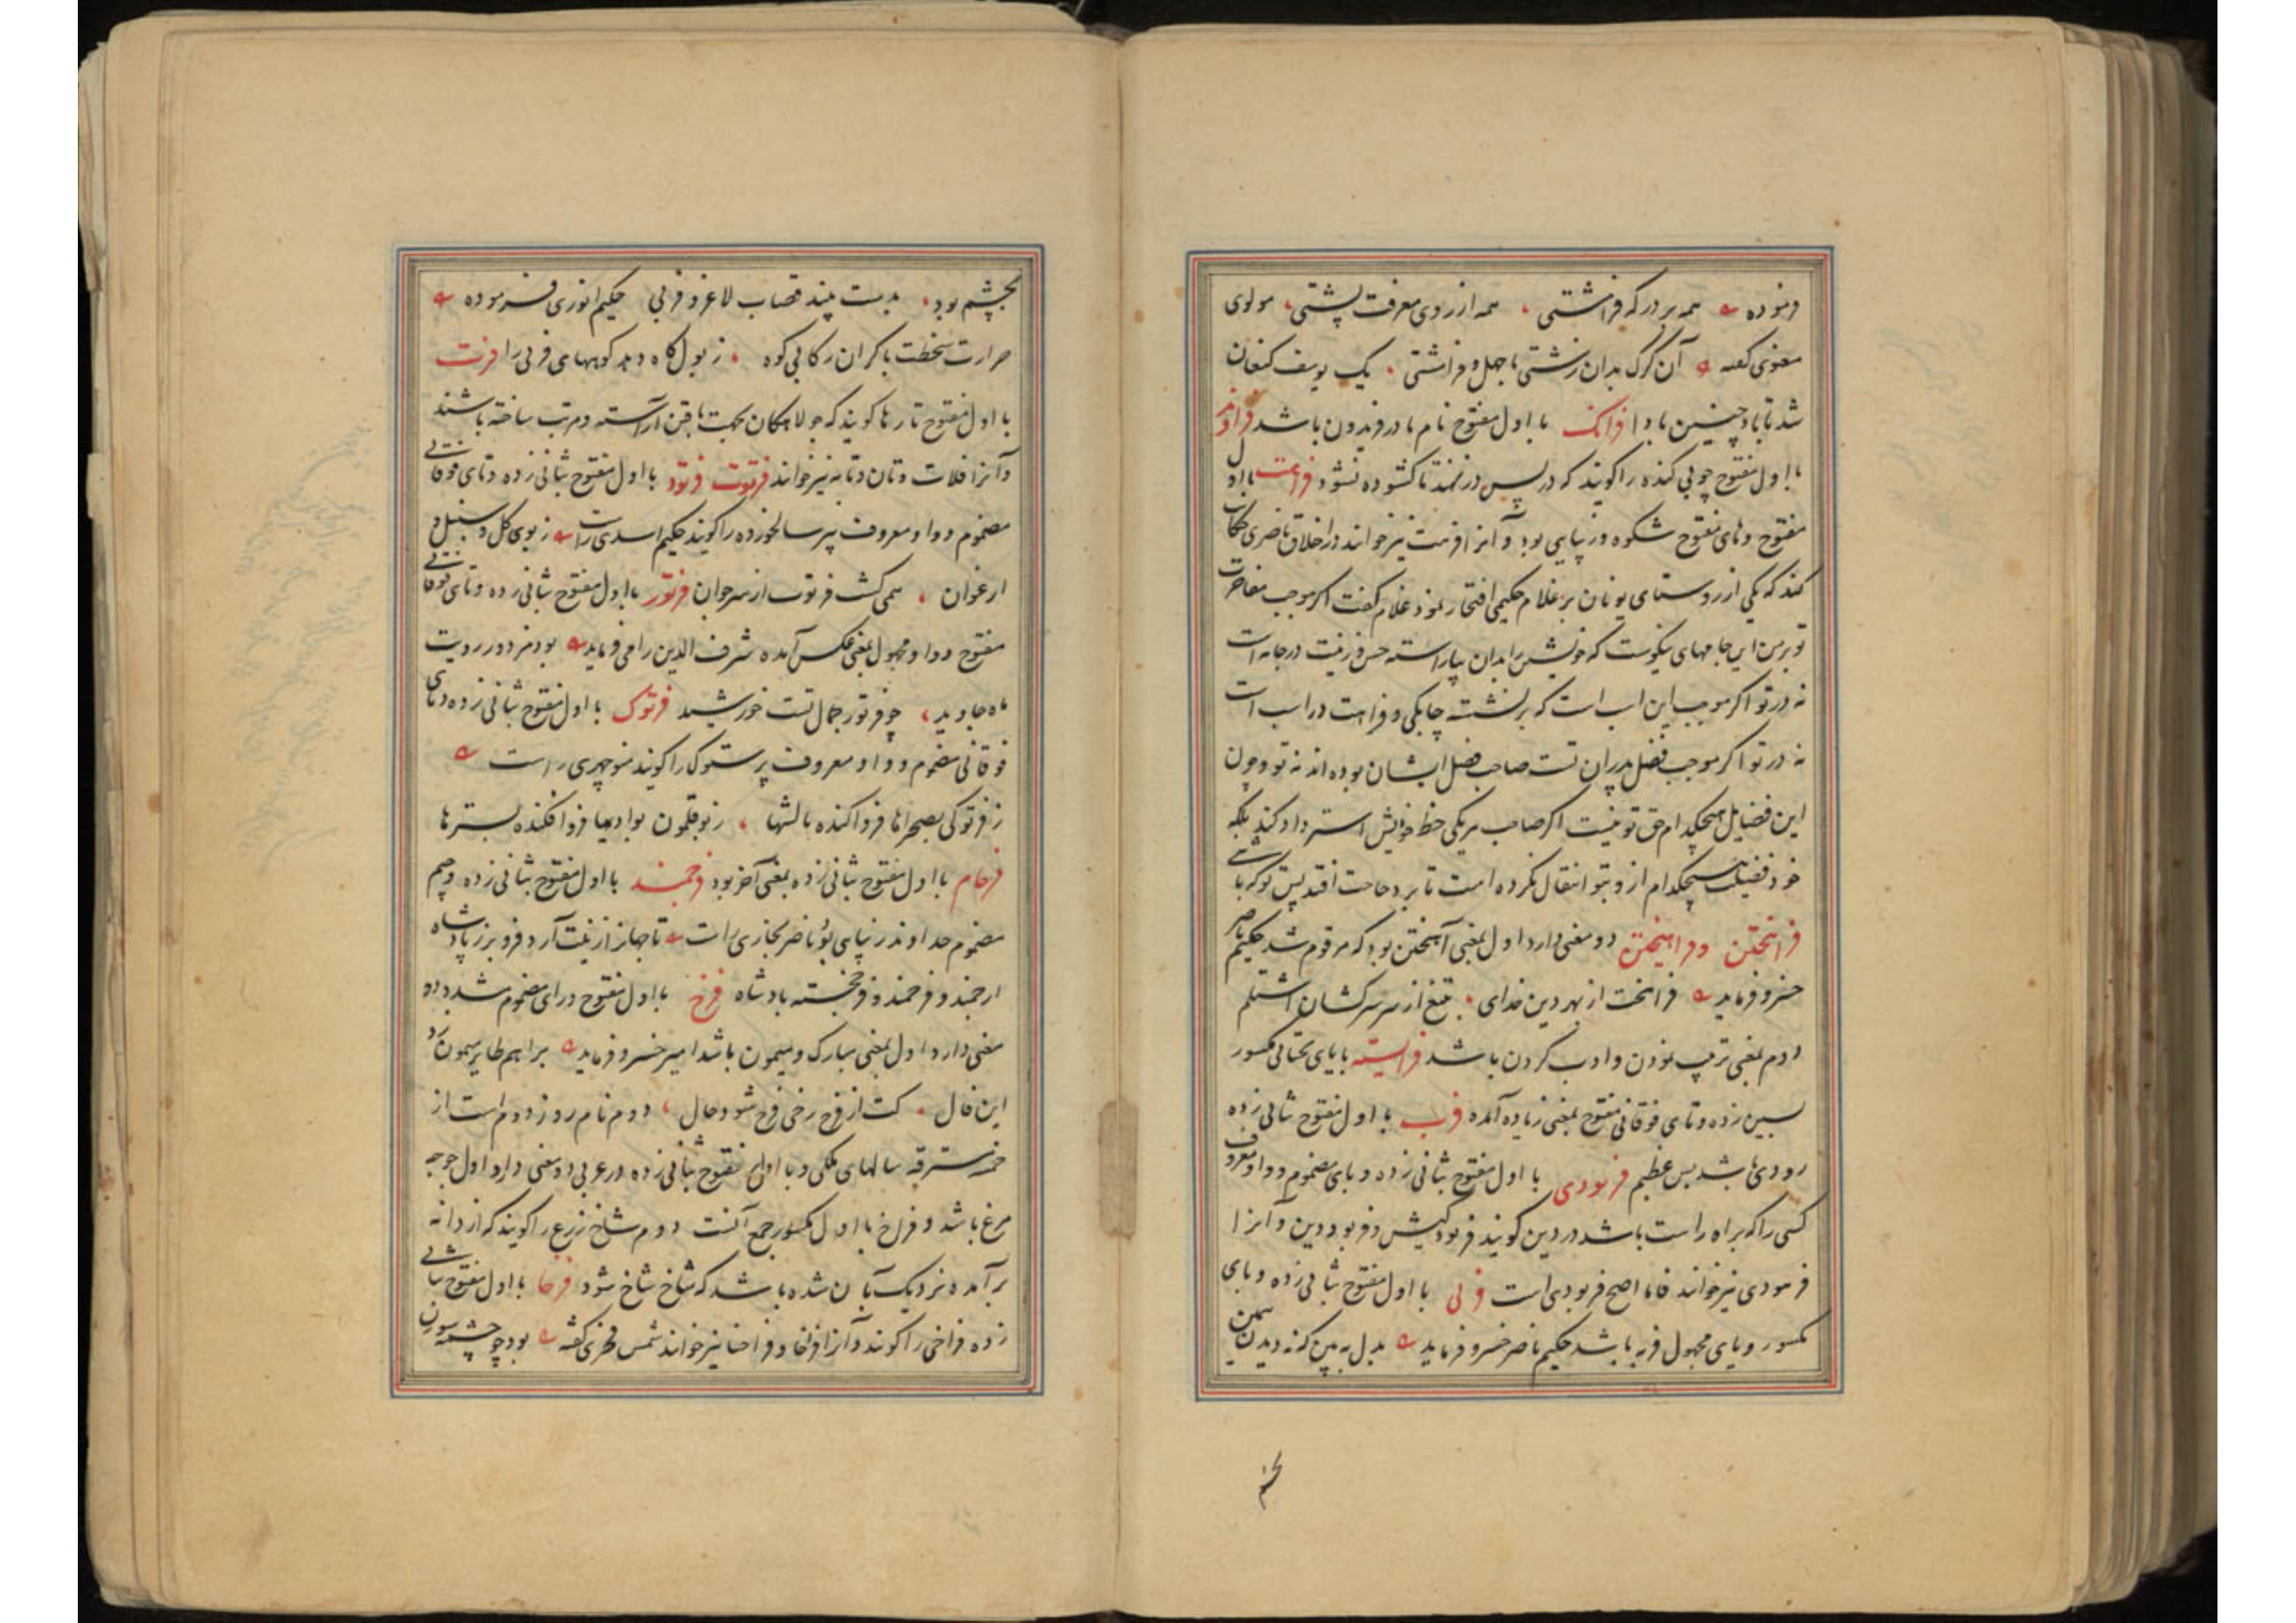 فرموده همه بر درکه فرامشتی همه از روی معرفت پشتی مولوی
معنوی گفته آن گرگ بدان زشتی با جهل و فرامشتی یک یوسف کنعان
شد تا باد چنین بادا فرانک با اول مفتوح نام مادر فریدون باشد فراوند
با اول مفتوح چوبی کنده را گویند که در پس در نهند تا کشوده نشود فراهت با اول
مفتوح و های مفتوح شکوه و زیبایی بود و آنرا فرهت نیز خوانند در اخلاق ناصری حکایت
کند که یکی از روستای یونان بر غلام حکیمی افتخار نمود غلام گفت اگر موجب مفاخرت
تو بر من این جامهای نیکوست که خویشتن را بدان بیاراسته حسن و زینت در جامه است
نه در تو اگر موجب این اسب است که برنشسته چابکی و فراهت در اسب است
نه در تو اگر موجب فضل پدران تست صاحب فضل ایشان بوده اند نه تو و چون
این فضایل هیچکدام حق تو نیست اگر صاحب هر یکی حظ خویش استرداد کند بلکه
خود فضیلت هیچکدام از و بتو انتقال نکرده است تا برد حاجت افتد پس تو که باشی
فراهختن و فراهیختن دو معنی دارد اول بمعنی آهیختن بود که مرقوم شد حکیم ناصر
خسرو فرماید فراهخت از بهر دین خدای تیغ از سر سرکشان اشتلم
دوم بمعنی ترتیب نمودن و ادب کردن باشد فرایسته با یای تحتانی مکسور
بسین زده و تای فوقانی مفتوح بمعنی زیاده آمده فرب با اول مفتوح بثانی زده
رودی باشد بس عظیم فربودی با اول مفتوح بثانی زده و بای مضموم و واو معروف
کسی را که براه راست باشد در دین گویند فربود کیش و فربود دین و آنرا
فرمودی نیز خوانند فاما اصح فربودی است فربی با اول مفتوح بثانی زده و بای
مکسور و یای مجهول فربه باشد حکیم ناصر خسرو فرماید بدل به بین که نه دیدن
بچشم
بچشم بود بدست پسند قصاب لاغر و فربی حکیم انوری فرموده
حرارت سخطت با گران رکابی کوه ز بول کاه دهد کوههای فربی را فرت
با اول مفتوح تارها گویند که جولاهکان بجهت بافتن آراسته و مرتب ساخته باشند
و آنرا فلات و تان و تانه نیز خوانند فرتوت فرتود با اول مفتوح بثانی زده و تای فوقانی
مضموم و واو معروف پیر سالخورده را گویند حکیم اسدی راست ز بوی گل و سنبل و
ارغوان همی گشت فرتوت از سر جوان فرتور با اول مفتوح بثانی زده و تای فوقانی
مفتوح و واو مجهول بمعنی عکس آمده شرف الدین رامی فرماید بود مزدور رویت
ماه جاوید چو فرتور جمال تست خورشید فرتوک با اول مفتوح بثانی زده و تای
فوقانی مضموم و واو معروف پرستوک را گویند منوچهری راست
ز فرتوکی بصحراها فرو افکنده بالشها ز بوقلمون بوادیها فرو افکنده بسترها
فرجام با اول مفتوح بثانی زده بمعنی آخر بود فرجمند با اول مفتوح بثانی زده و جیم
مضموم خداوند زیبایی بود ناصر بخاری راست تا جهانرا زینت آرد فرو برز پادشاه
ارجمند و فرجمند و فرخجسته پادشاه فرخ با اول مفتوح و رای مضموم مشدد دو
معنی دارد اول بمعنی مبارک و میمون باشد امیر خسرو فرماید براهیم طایر میمون زد
این فال کت از فرخ رخی فرخ شود حال دوم نام روز دوم است از
خمسه مسترقه سالهای ملکی و با اول مفتوح بثانی زده در عربی دو معنی دارد اول جوجه
مرغ باشد و فراخ با اول مکسور جمع آنست دوم شاخ زرع را گویند که از دانه
برآمده نزدیک بآن شده باشد که شاخ شاخ شود فرخا با اول مفتوح بثانی
زده فراخی را گویند و آنرا فراخا و فراخنا نیز خوانند شمس فخری گفته بود چو چشمه سوزن